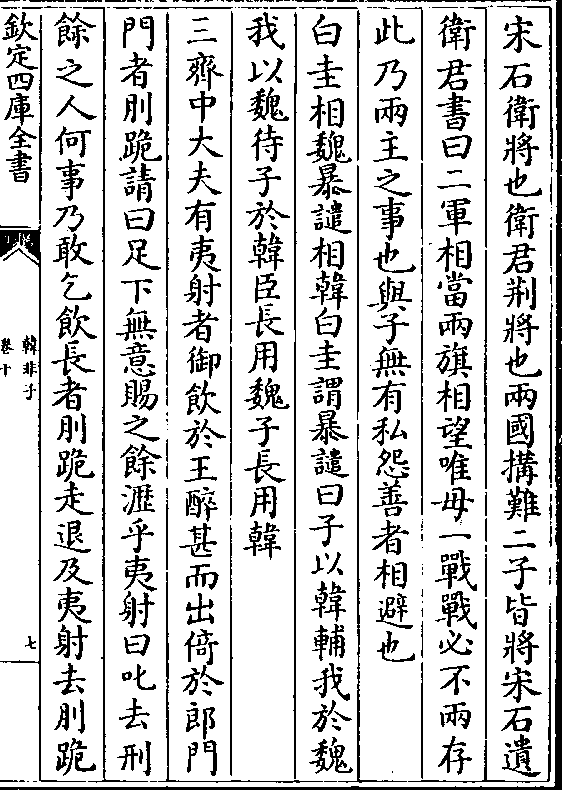 宋石衛將也衛君荆將也兩國搆難二子皆將宋石遺
衛君書曰二軍相當兩旗相望唯毋一戰戰必不兩存
此乃兩主之事也與子無有私怨善者相避也
白圭相魏暴譴相韓白圭謂暴譴曰子以韓輔我於魏
我以魏待子於韓臣長用魏子長用韓
三齊中大夫有夷射者御飲於王醉甚而出倚於郎門
門者刖跪請曰足下無意賜之餘瀝乎夷射曰叱去刑
餘之人何事乃敢乞飲長者刖跪走退及夷射去刖跪
欽定四庫全書
韓非子
卷十
七